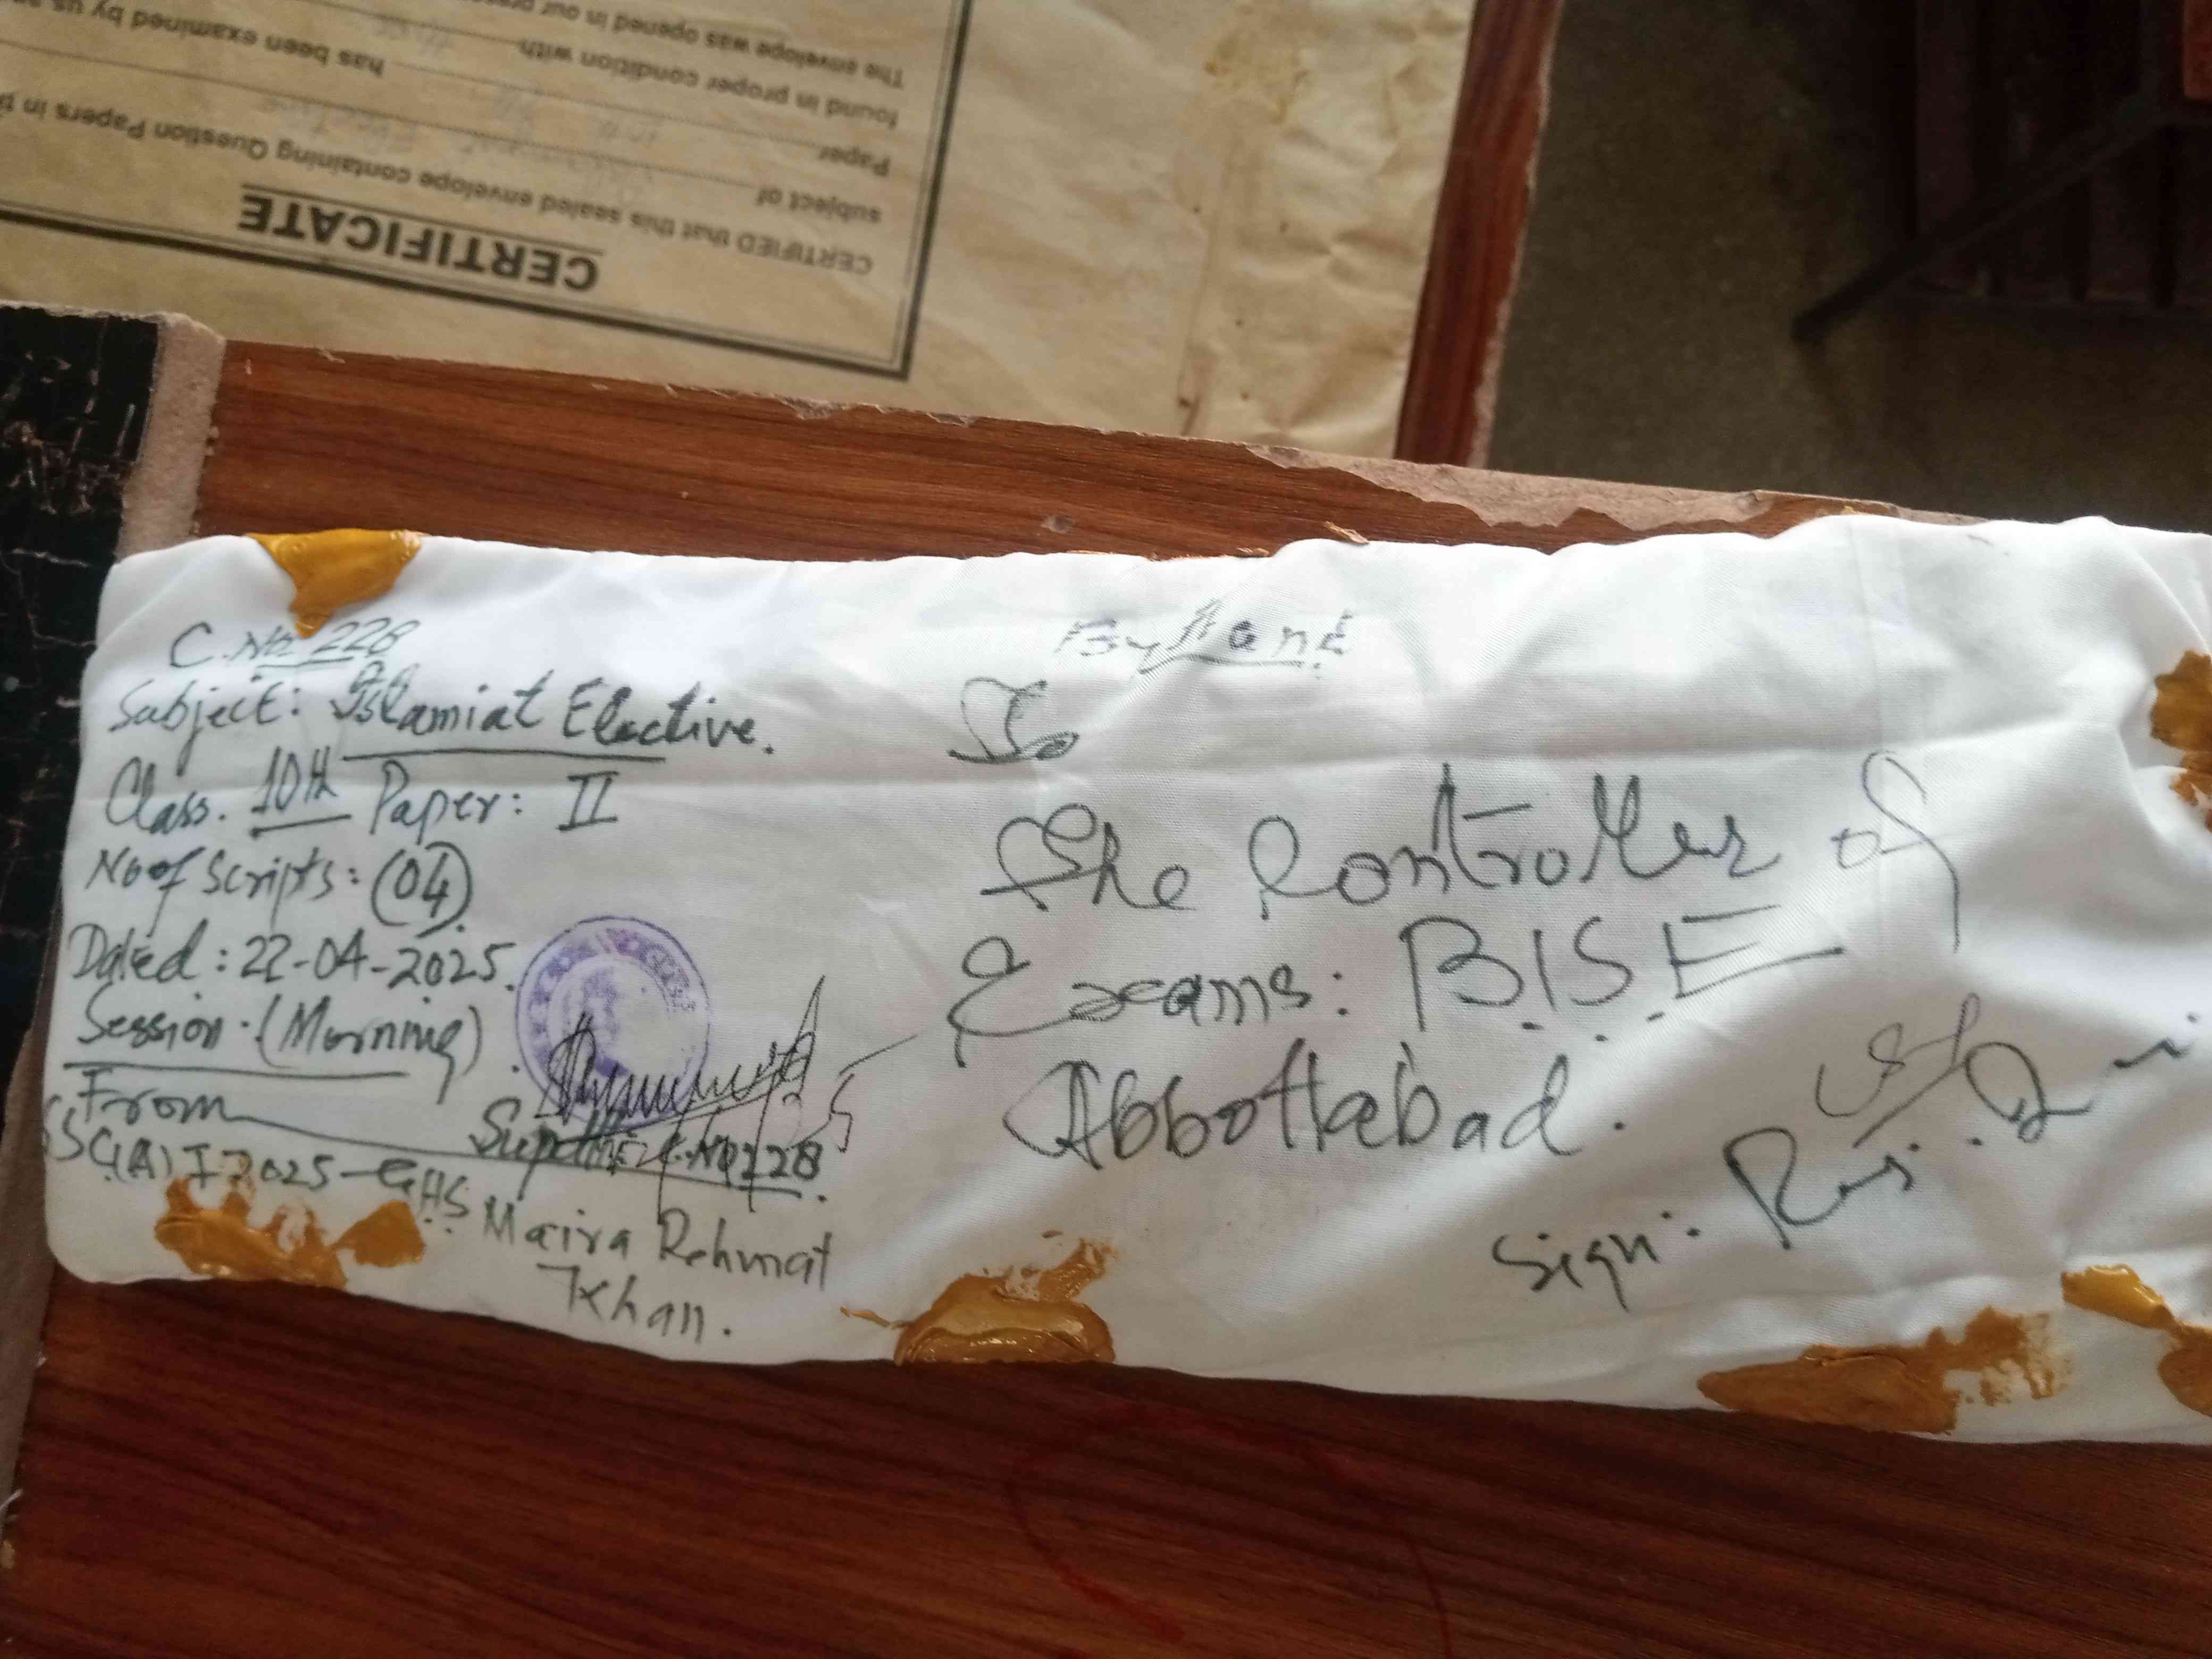 CERTIFICATE
CERTIFIED that this sealed envelope containing Question Papers in
subject of
Paper has been examined by us
found in proper condition with
The envelope was opened in our
C.No. 228
Subject: Islamiat Elective.
Class. 10th Paper: II
No of Scripts: (04)
Dated: 22-04-2025.
Session. (Morning)
From
Supdtt: C.No 228
SSC(A) I 2025 - GHS Maira Rehmat
Khan.
By Hand
To
The Controller of
Exams: B.I.S.E
Abbottabad.
Sign: